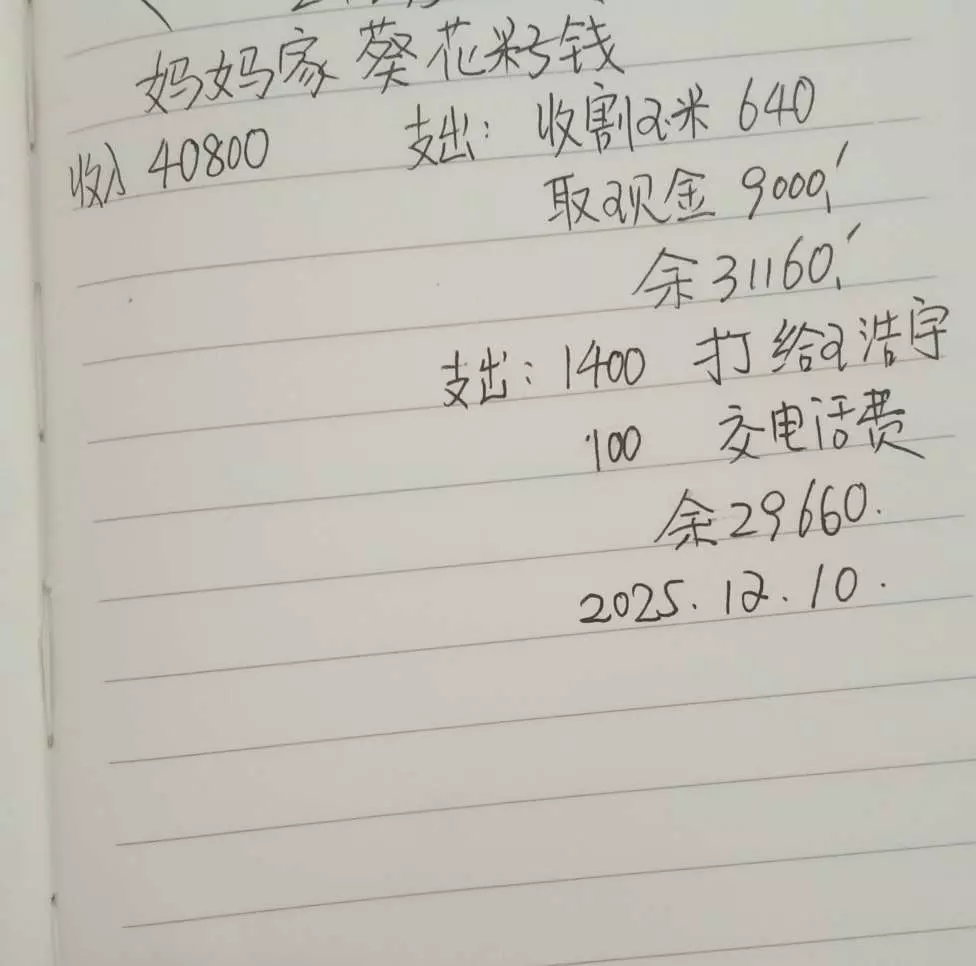 妈妈家 葵花籽钱
收入 40800 支出: 收割玉米 640
取现金 9000
余31160
支出: 1400 打给王浩宇
100 交电话费
余29660.
2025.12.10.